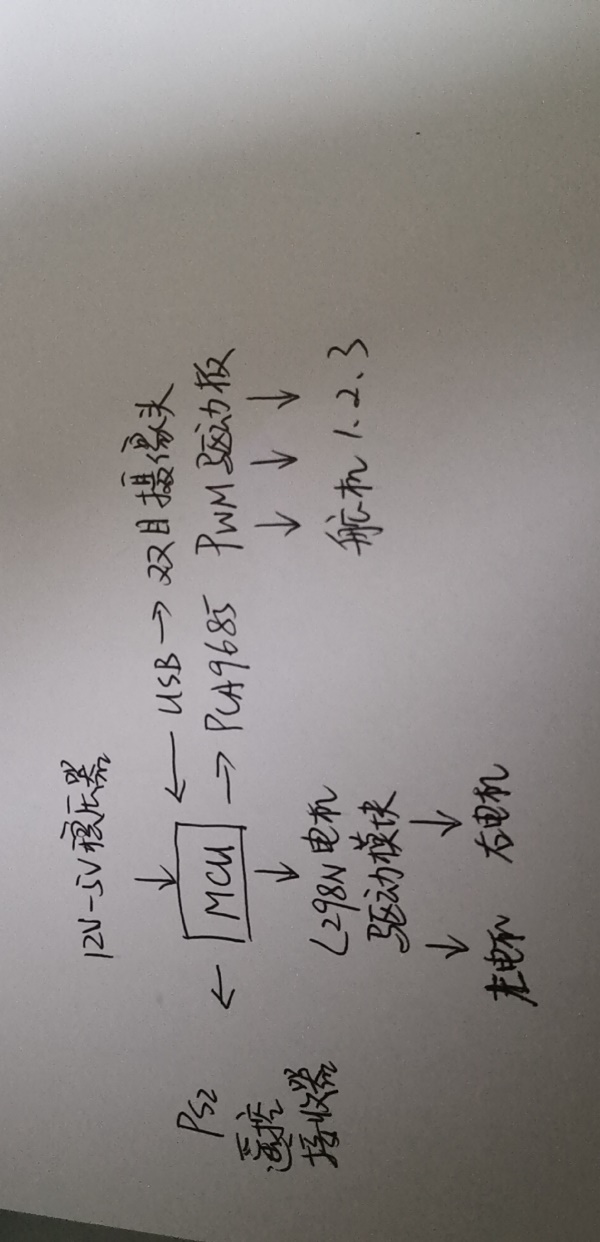 12V-5V稳压器
USB → 双目摄像头
MCU
PCA9685 PWM驱动板
舵机1、2、3
PS2
遥控
接收器
L298N电机
驱动模块
左电机 右电机